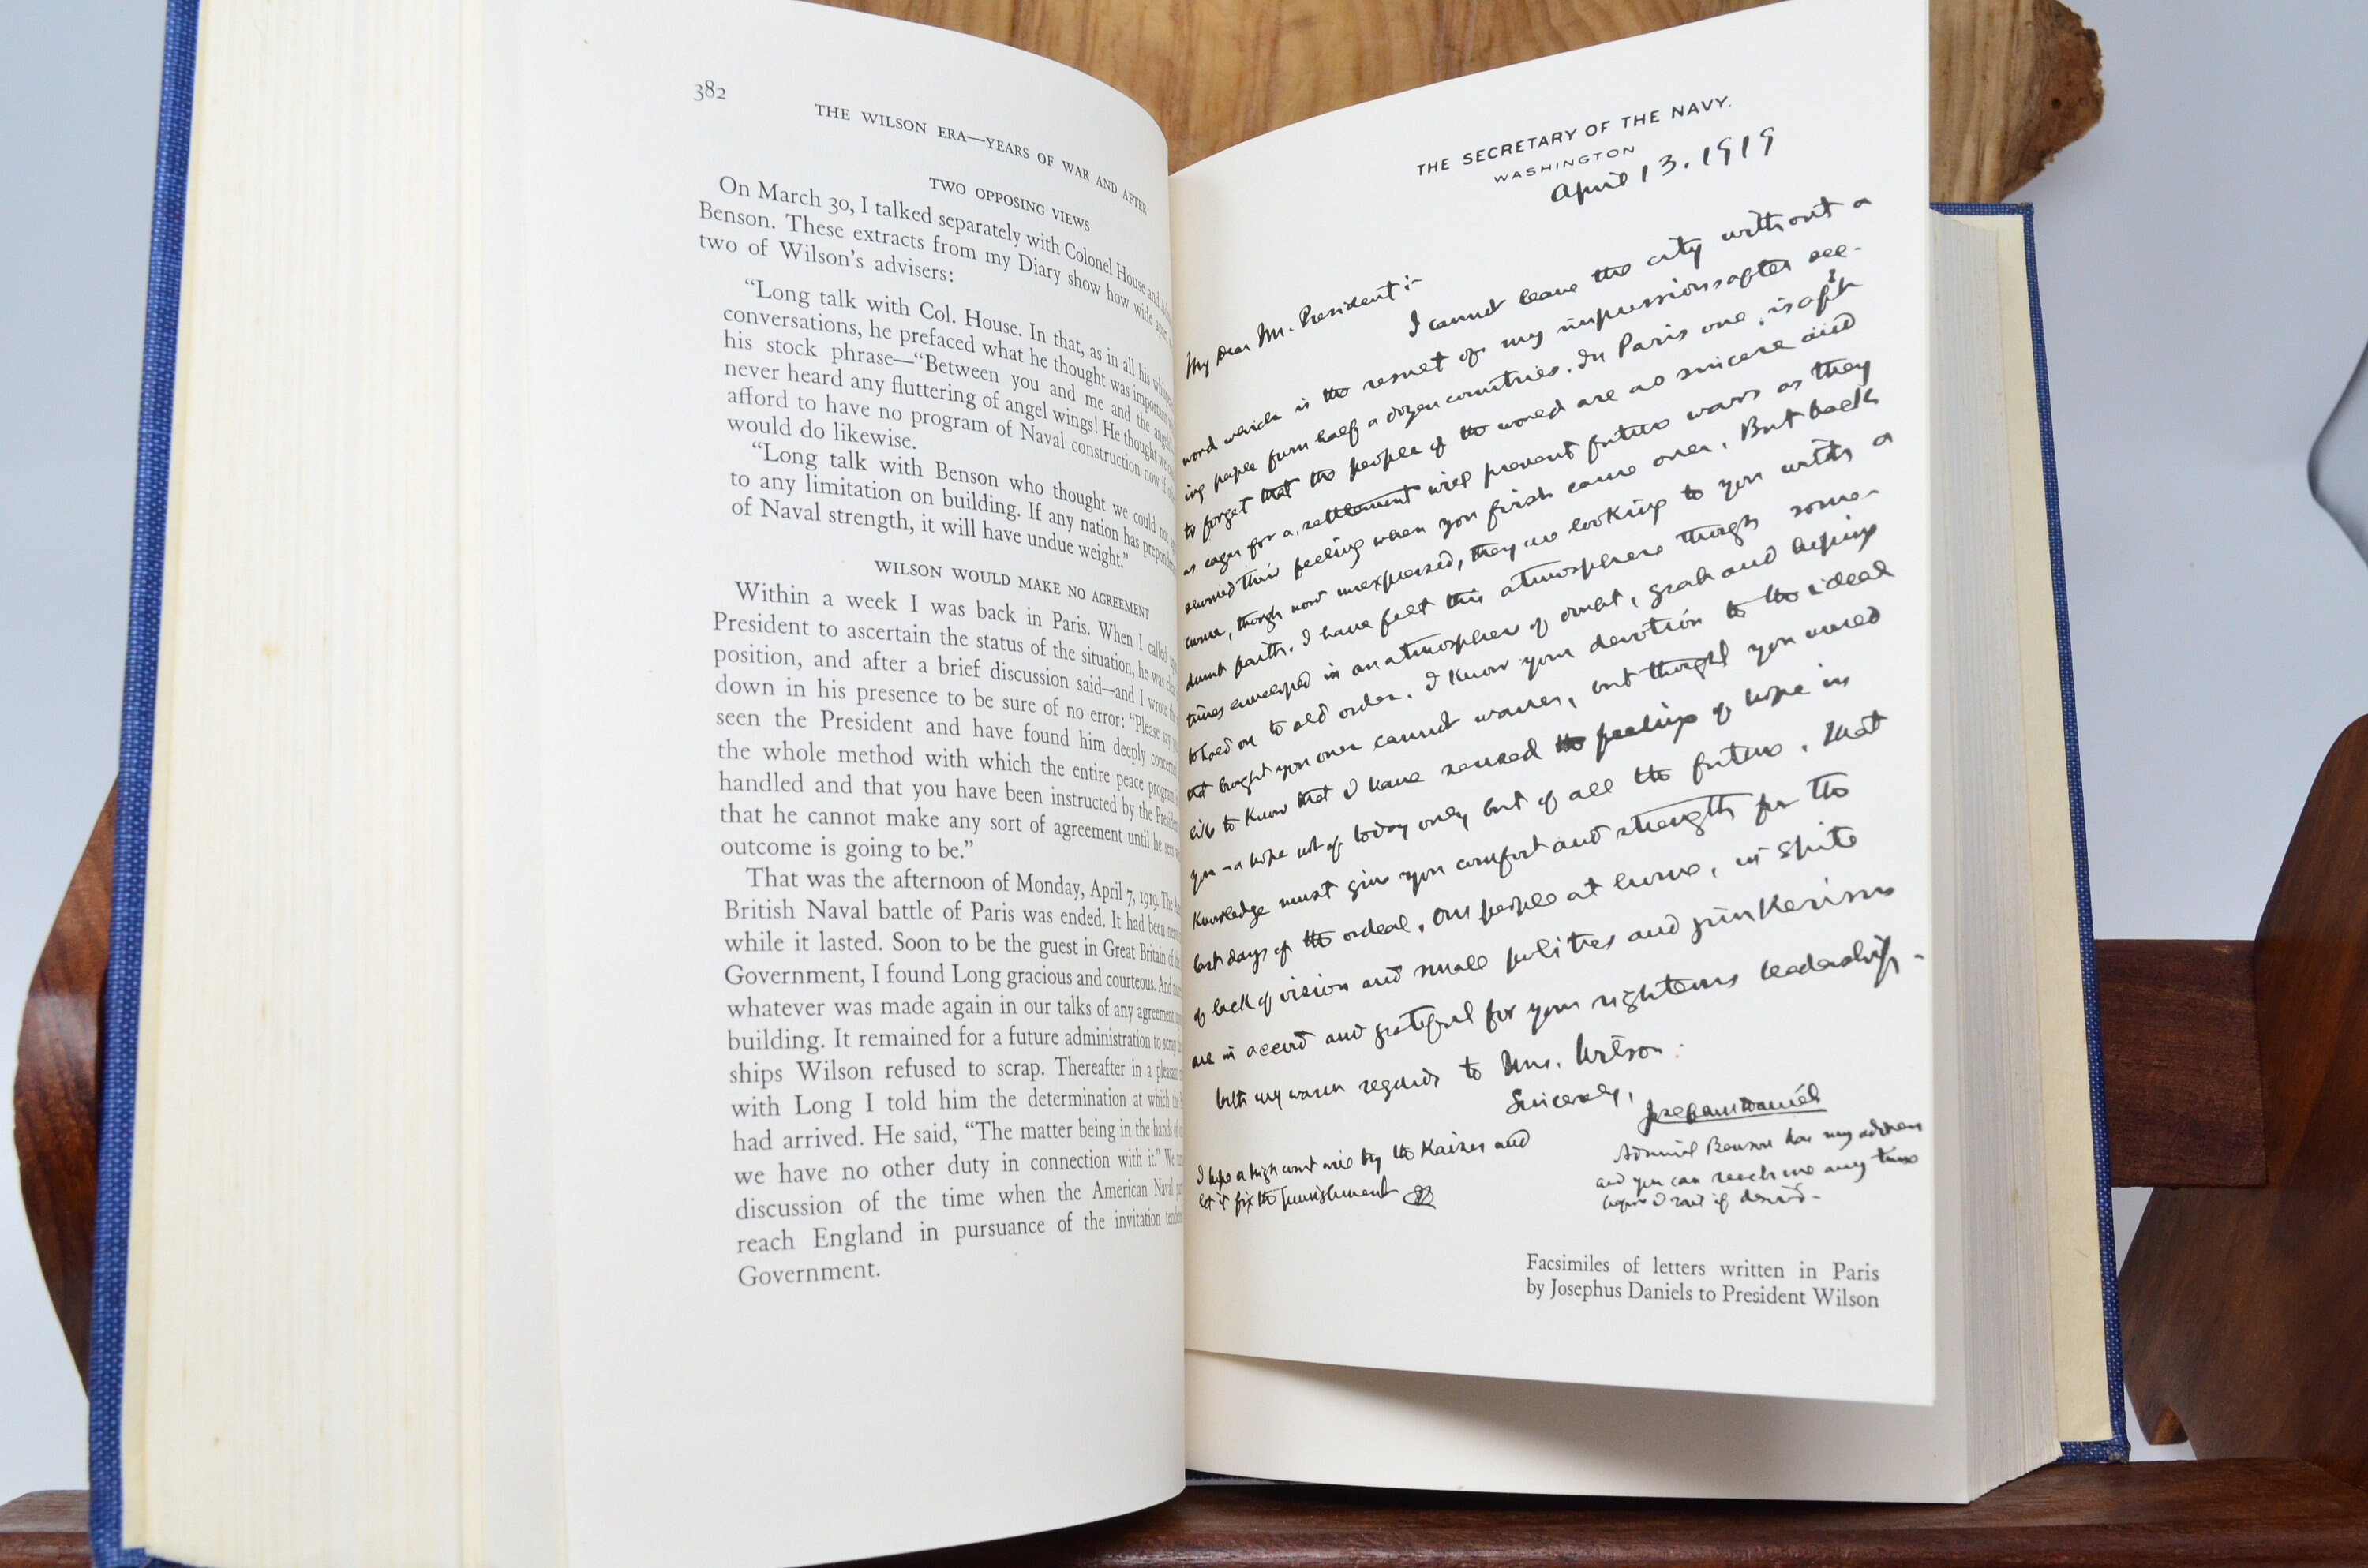 382
THE WILSON ERA—YEARS OF WAR AND AFTER
TWO OPPOSING VIEWS
On March 30, I talked separately with Colonel House and
Benson. These extracts from my Diary show how wide
two of Wilson's advisers:
"Long talk with Col. House. In that, as in all his
conversations, he prefaced what he thought was important
his stock phrase—"Between you and me and the
never heard any fluttering of angel wings! He thought we
afford to have no program of Naval construction now if
would do likewise.
"Long talk with Benson who thought we could
to any limitation on building. If any nation has
of Naval strength, it will have undue weight."
WILSON WOULD MAKE NO AGREEMENT
Within a week I was back in Paris. When I called
President to ascertain the status of the situation, he was
position, and after a brief discussion said—and I wrote
down in his presence to be sure of no error: "Please say
seen the President and have found him deeply
the whole method with which the entire peace program
handled and that you have been instructed by the
that he cannot make any sort of agreement until he sees
outcome is going to be."
That was the afternoon of Monday, April 7, 1919. The
British Naval battle of Paris was ended. It had been
while it lasted. Soon to be the guest in Great Britain of
Government, I found Long gracious and courteous. And
whatever was made again in our talks of any agreement
building. It remained for a future administration to scrap
ships Wilson refused to scrap. Thereafter in a pleasant
with Long I told him the determination at which
had arrived. He said, "The matter being in the hands of
we have no other duty in connection with it." We
discussion of the time when the American Naval
reach England in pursuance of the invitation
Government.
THE SECRETARY OF THE NAVY.
WASHINGTON
April 13. 1919
My Dear Mr. President:-
I cannot leave the city without a
word which is the result of my impressions after see-
ing people from half a dozen countries. In Paris one is apt
to forget that the people of the world are as sincere and
as eager for a settlement will prevent future wars as they
showed their feeling when you first came over. But back
home, though now unexpressed, they are looking to you with a
faith. I have felt this atmosphere though some-
times enveloped in an atmosphere of doubt, grab and
to hold on to old order. I know your devotion to the ideal
that brought you over cannot waver, but thought you would
like to know that I have sensed the feeling of hope in
you - a hope not of today only but of all the future. That
knowledge must give you comfort and strength for the
last days of the ordeal. Our people at home, in spite
of lack of vision and small politics and junkerism
are in accord and grateful for your righteous leadership.
With my warm regards to Mrs. Wilson.
Sincerely,
Josephus Daniels
I hope a high court will try the Kaiser and
let it fix the punishment
Admiral Benson has my address
and you can reach me any time
before I sail if desired.
Facsimiles of letters written in Paris
by Josephus Daniels to President Wilson